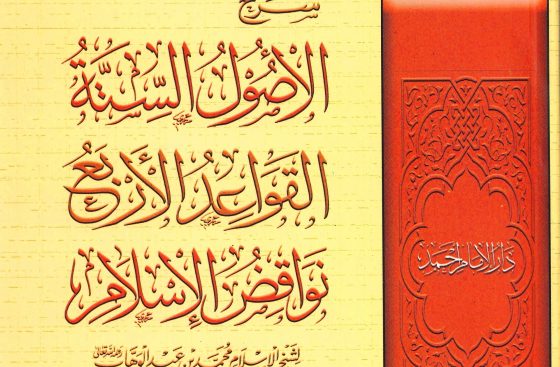 شرح
الأُصُولُ السِّتَّةُ
القَوَاعِدُ الأَرْبَعُ
نَوَاقِضُ الإِسْلَامِ
لشيخ الإسلام محمد بن عبد الوهاب رحمه الله تعالى
دار الإمام أحمد